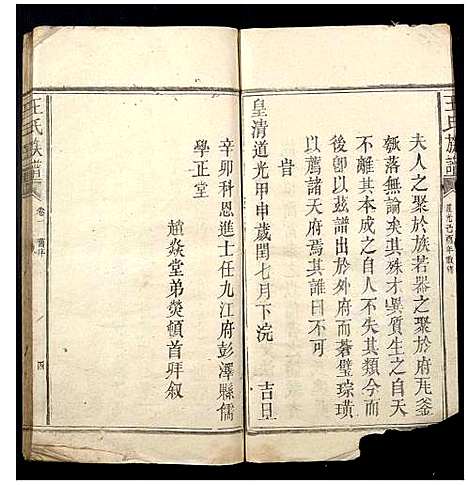 王氏族譜
夫人之聚於族若器之聚於府瓦釜
瓠落無論矣其殊才異質生之自天
不離其本成之自人不失其類今而
後卽以兹譜出於外府而蒼璧琮璜
以薦諸天府焉其誰曰不可
旹
皇清道光甲申歲閏七月下浣 吉旦
辛卯科恩進士任九江府彭澤縣儒
學正堂
趙焱堂弟熒頓首拜叙
王氏族譜
卷一
四